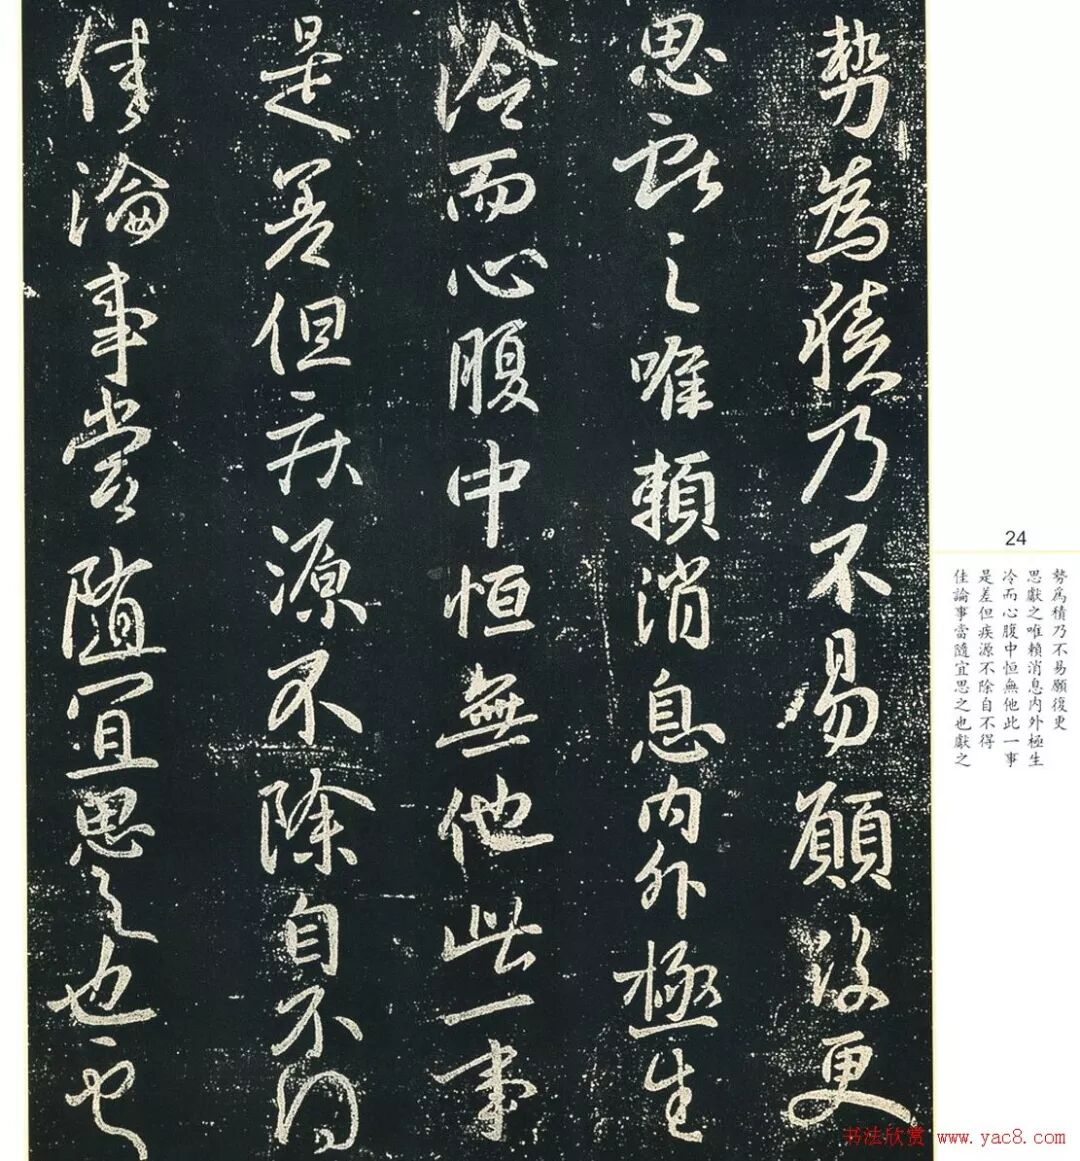 勢為積乃不易願復更
思獻之唯賴消息内外極生
冷而心腹中恒無他此一事
是差但疾源不除自不得
佳論事當隨宜思之也獻之
24
勢爲積乃不易願復更
思獻之唯賴消息内外極生
冷而心腹中恒無他此一事
是差但疾源不除自不得
佳論事當隨宜思之也獻之
书法欣赏 www.yac8.com